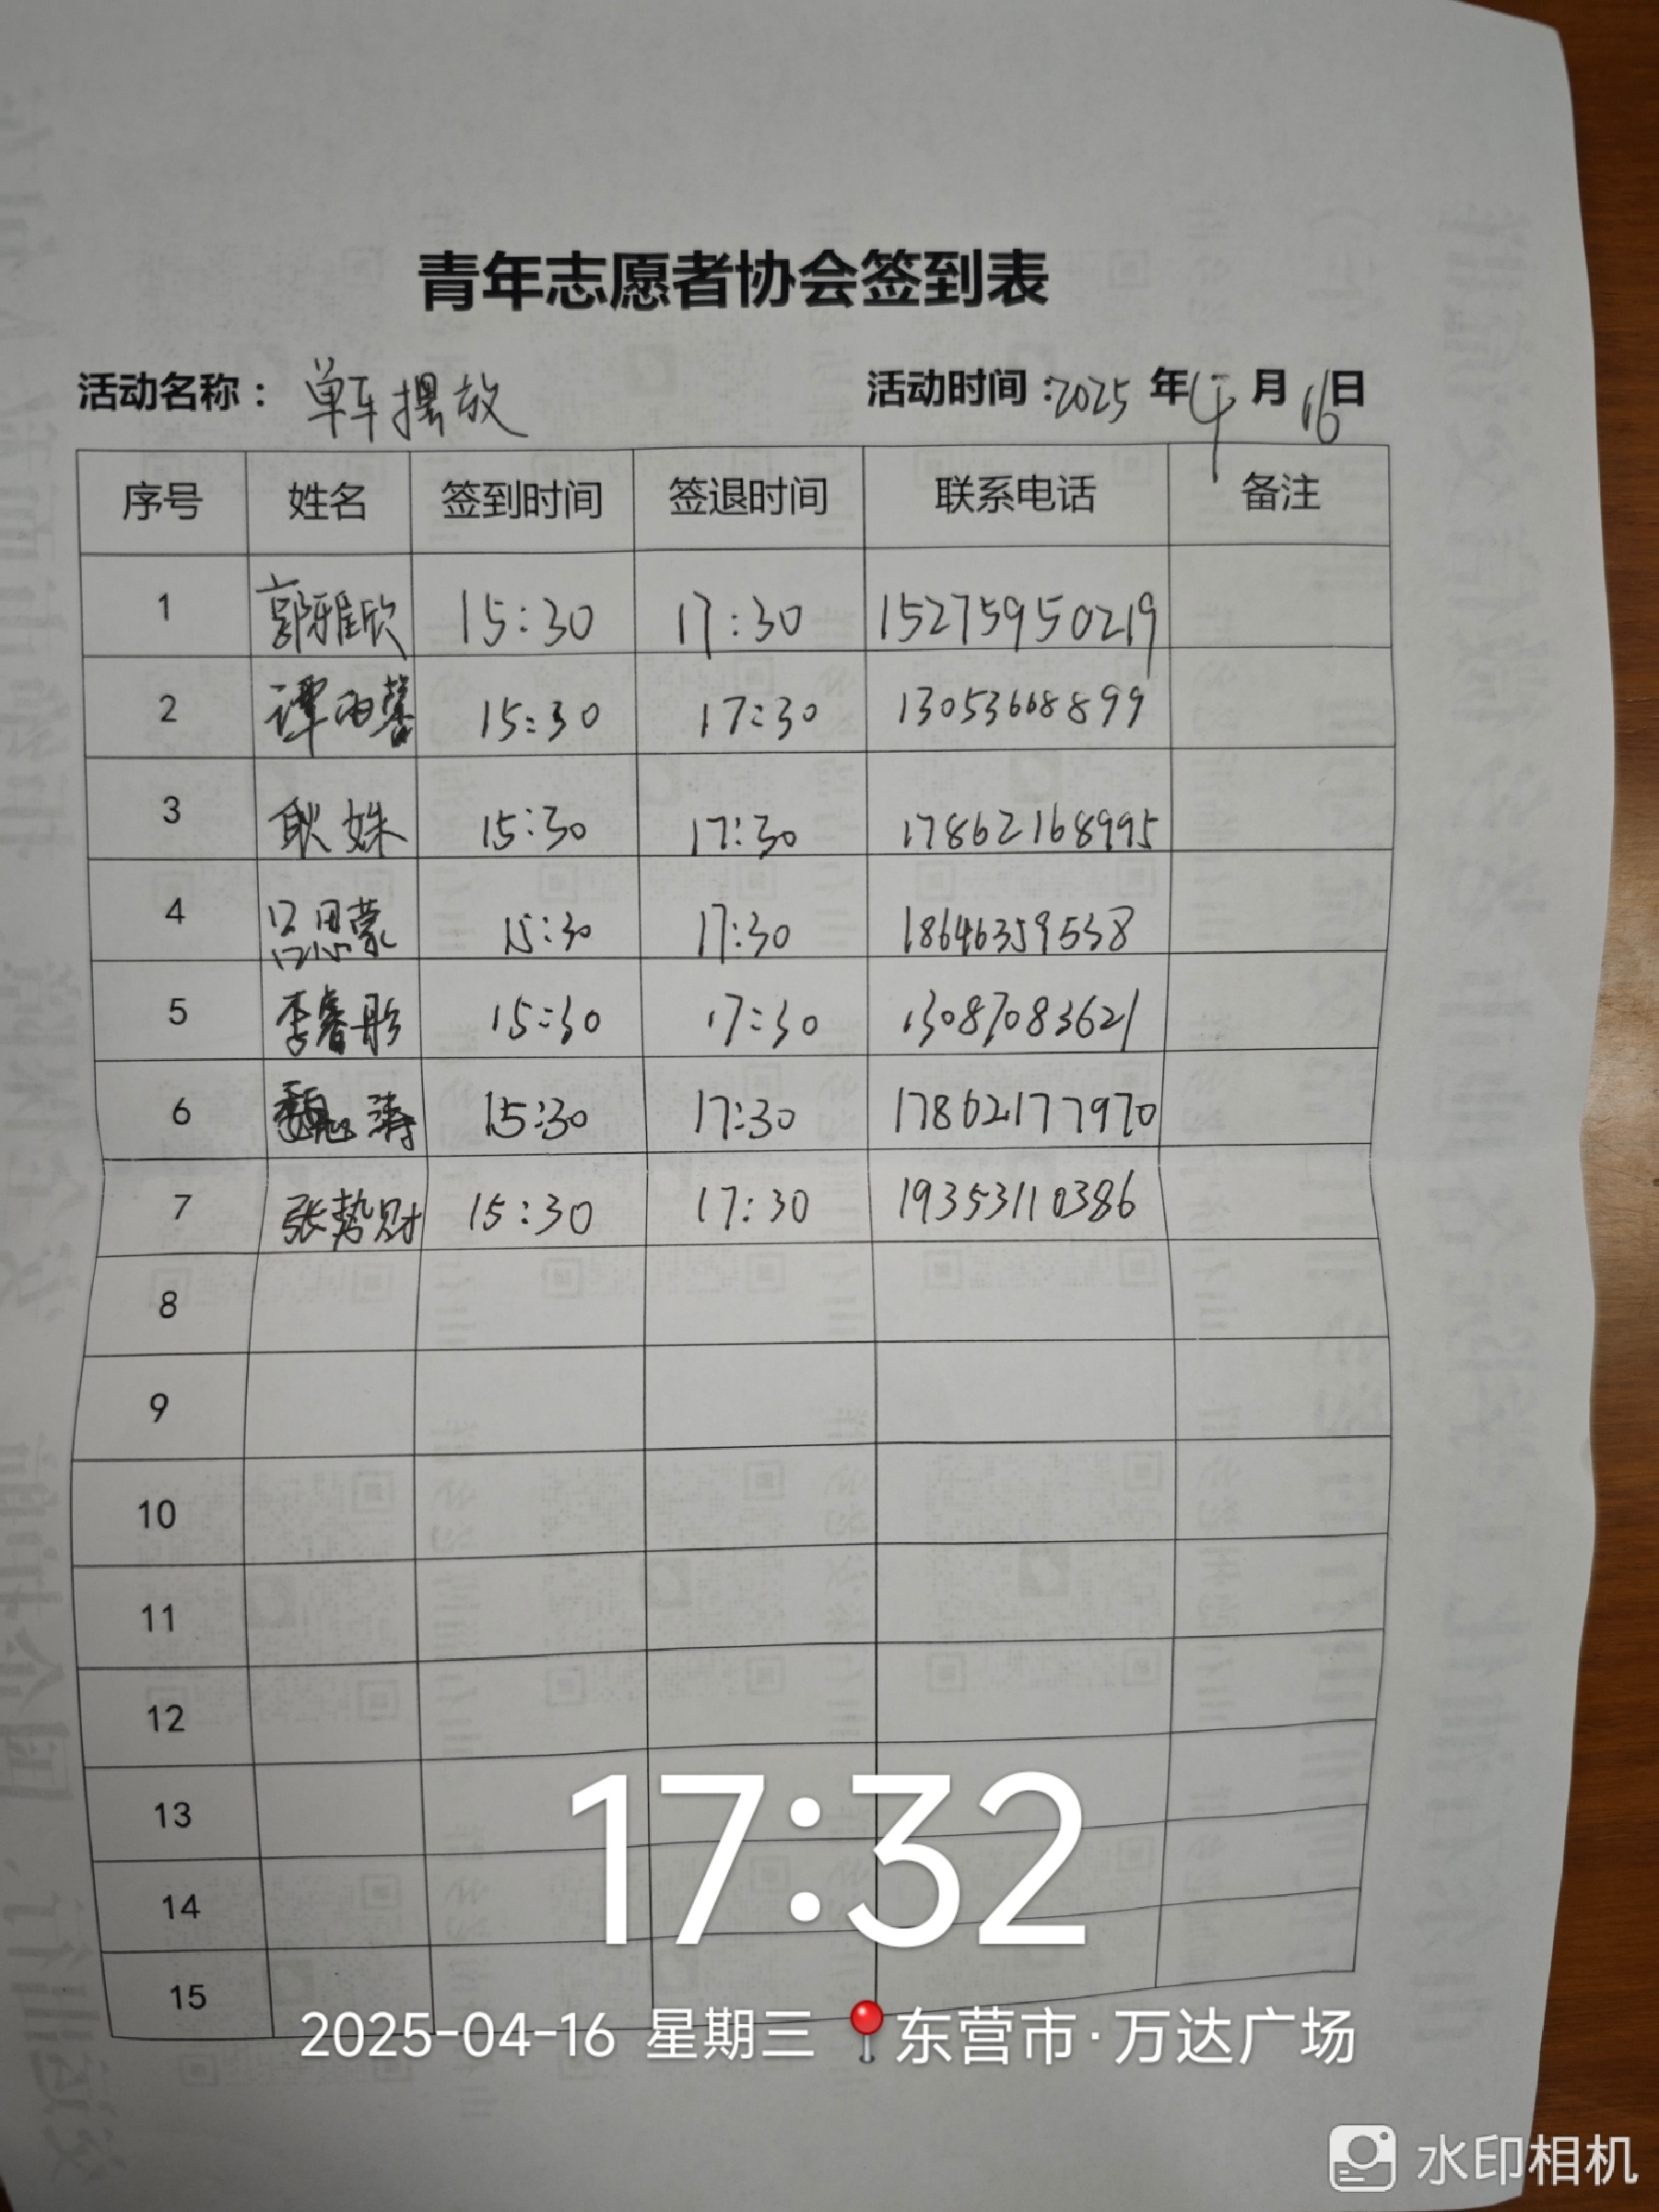 青年志愿者协会签到表
活动名称：单车摆放 活动时间：2025年4月16日
序号 姓名 签到时间 签退时间 联系电话 备注
1 郭雅欣 15:30 17:30 15275950219
2 谭雨馨 15:30 17:30 13053668899
3 耿姝 15:30 17:30 17862168995
4 吕思蒙 15:30 17:30 18646359538
5 李睿彤 15:30 17:30 13087083621
6 魏涛 15:30 17:30 17862177970
7 张势财 15:30 17:30 19353110386
8
9
10
11
12
13
14
15
17:32
2025-04-16 星期三 东营市·万达广场
水印相机